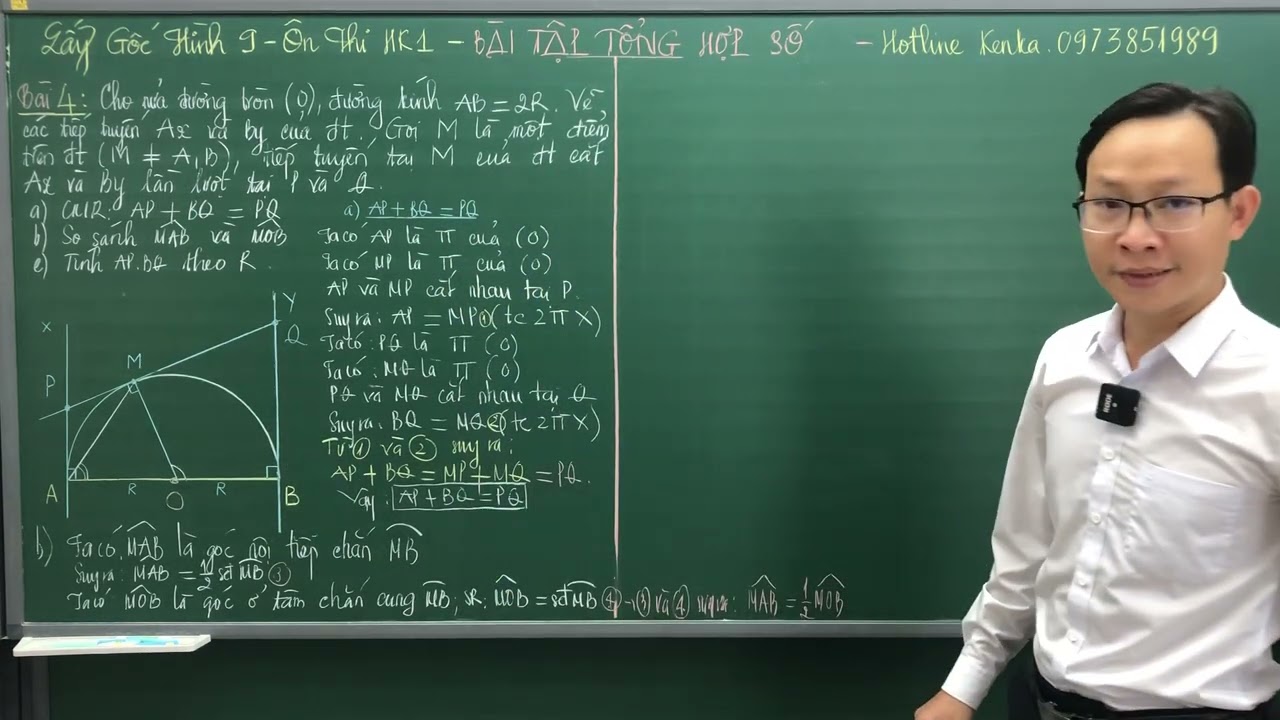 Lấy Gốc Hình 9 - Ôn Thi HK1 - BÀI TẬP TỔNG HỢP SỐ - Hotline Kenka. 0973851989
Bài 4: Cho nửa đường tròn (O), đường kính AB = 2R. Vẽ
các tiếp tuyến Ax và By của đt. Gọi M là một điểm
trên đt (M ≠ A, B), tiếp tuyến tại M của đt cắt
Ax và By lần lượt tại P và Q.
a) CMR: AP + BQ = PQ
b) So sánh M̂AB và M̂OB
c) Tính AP.BQ theo R.
a) AP + BQ = PQ
Ta có AP là TT của (O)
Ta có MP là TT của (O)
AP và MP cắt nhau tại P.
Suy ra: AP = MP ① (tc 2TT X)
Ta có: PQ là TT (O)
Ta có: MQ là TT (O)
PQ và MQ cắt nhau tại Q
Suy ra: BQ = MQ ② (tc 2TT X)
Từ ① và ② suy ra:
AP + BQ = MP + MQ = PQ.
Vậy: AP + BQ = PQ
x
y
P
M
Q
A
R
O
R
B
b) Ta có, M̂AB là góc nội tiếp chắn M͡B
Suy ra: M̂AB = 1/2 sđ M͡B ③
Ta có M̂OB là góc ở tâm chắn cung M͡B; SR: M̂OB = sđ M͡B ④ - ③ và ④ suy ra: M̂AB = 1/2 M̂OB
RODE